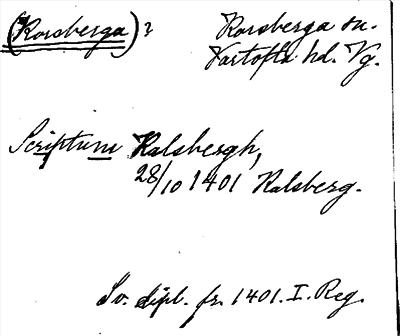 (Korsberga)? Korsberga sn.
Vartofta hd. Vg.
Scriptum Kalsbergh,
28/10 1401 Kalsberg.
Sv. dipl. fr. 1401. I. Reg.